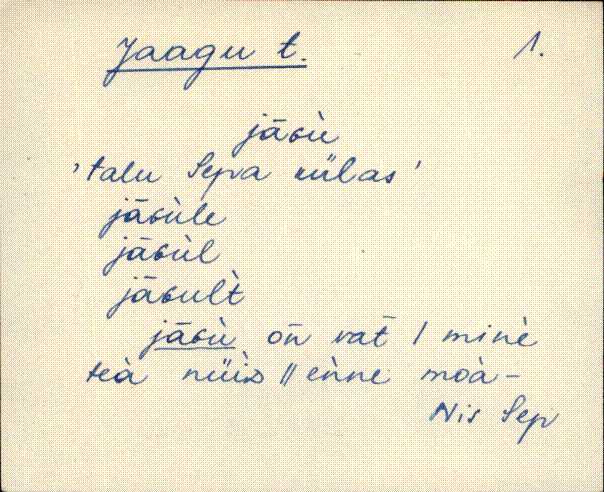 Jaagu t. 1.
jāɢù
'talu Sepa külas'
jāɢùle
jāɢùl
jāɢult̀
jāɢù on̄ vat̄ / minè
teà nüiᴅ // eǹne moà-
Nis Sep